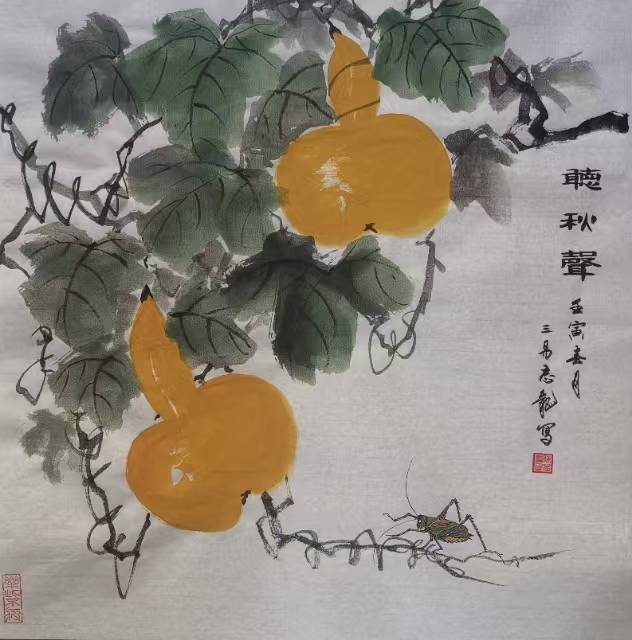 聽秋聲
壬寅春月
三丹志龍寫